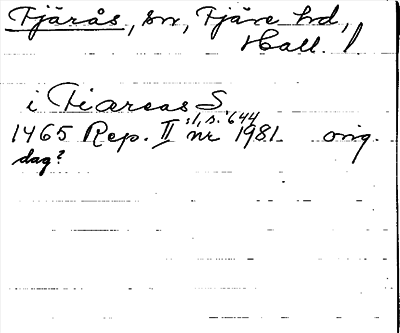 Fjärås, sn, Fjäre hd,
Hall. /
i Fiæreas S
:1, s. 644
1465 Rep. II nr 1981 orig.
dag?